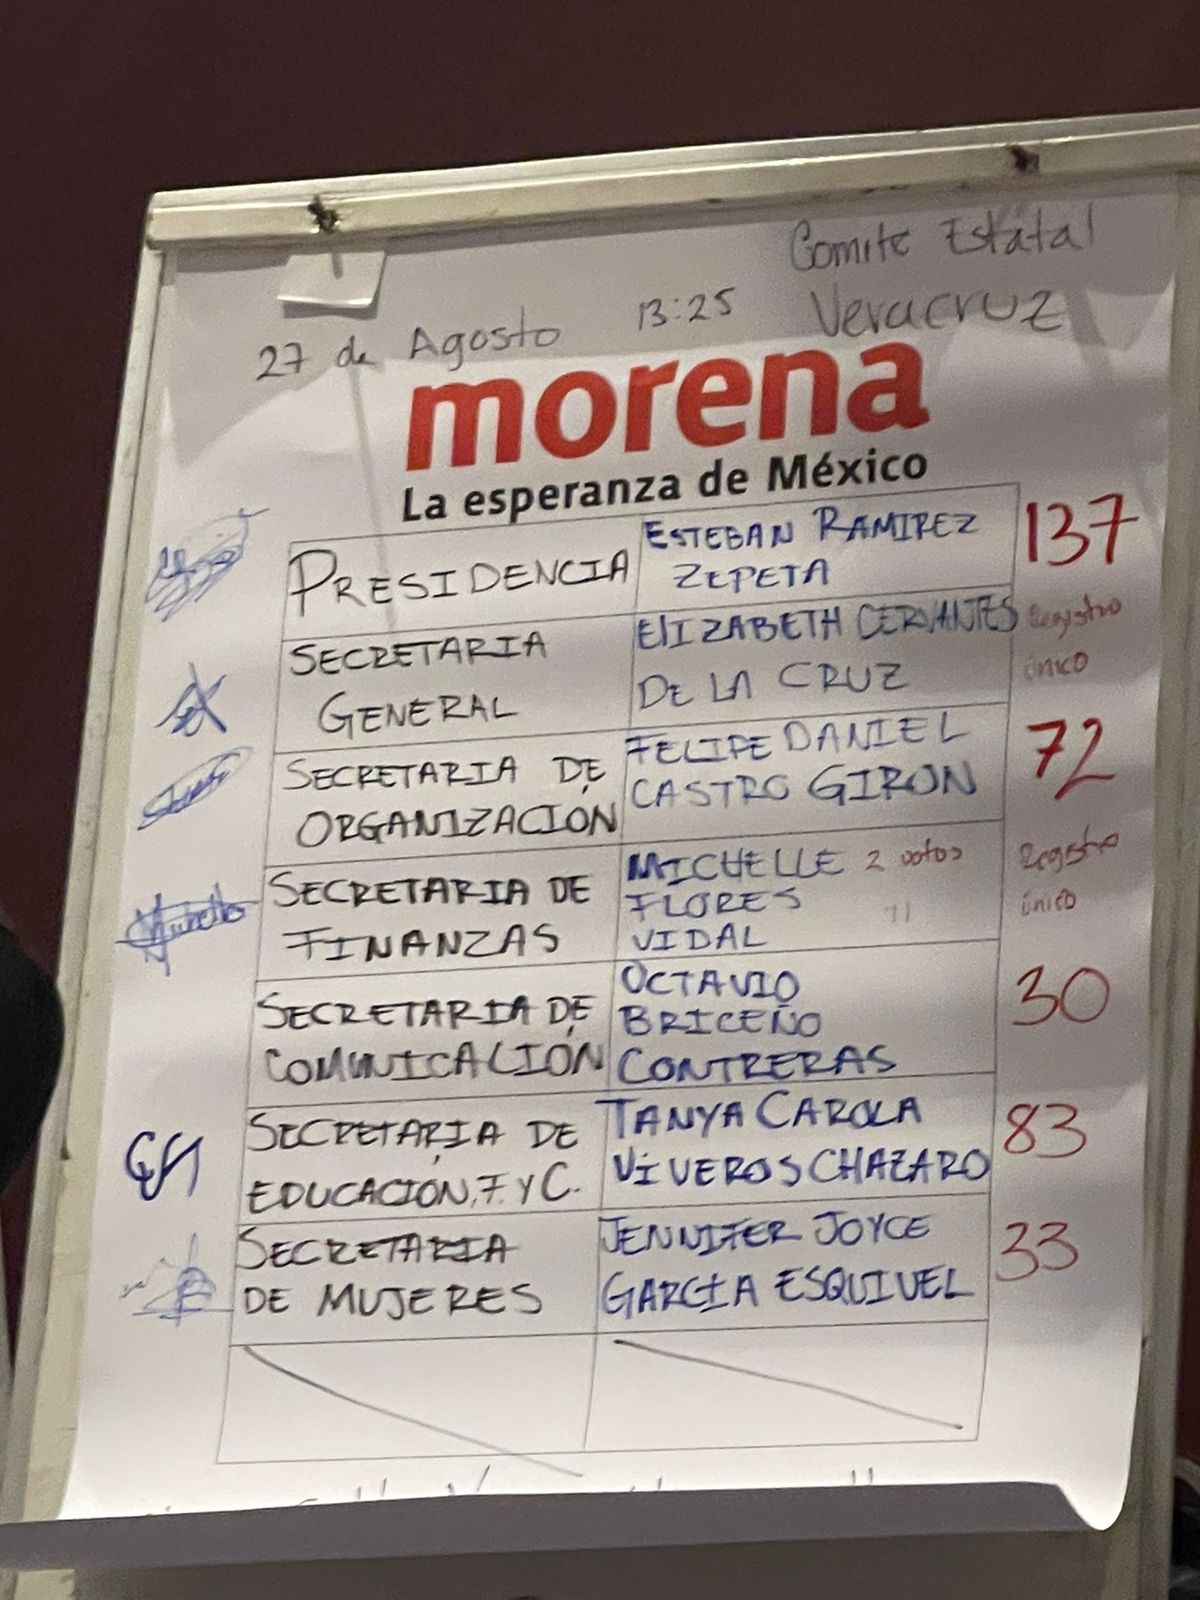 Comite Estatal
27 de Agosto 13:25 Veracruz
morena
La esperanza de México
PRESIDENCIA
ESTEBAN RAMIREZ
ZEPETA
137
SECRETARIA
GENERAL
ELIZABETH CERVANTES
DE LA CRUZ
Registro
único
SECRETARIA DE
ORGANIZACIÓN
FELIPE DANIEL
CASTRO GIRON
72
SECRETARIA DE
FINANZAS
MICHELLE 2 votos
FLORES
VIDAL
Registro
único
SECRETARIA DE
COMUNICACIÓN
OCTAVIO
BRICEÑO
CONTRERAS
30
SECRETARIA DE
EDUCACIÓN, F. Y C.
TANYA CAROLA
VIVEROS CHAZARO
83
SECRETARIA
DE MUJERES
JENNIFER JOYCE
GARCIA ESQUIVEL
33